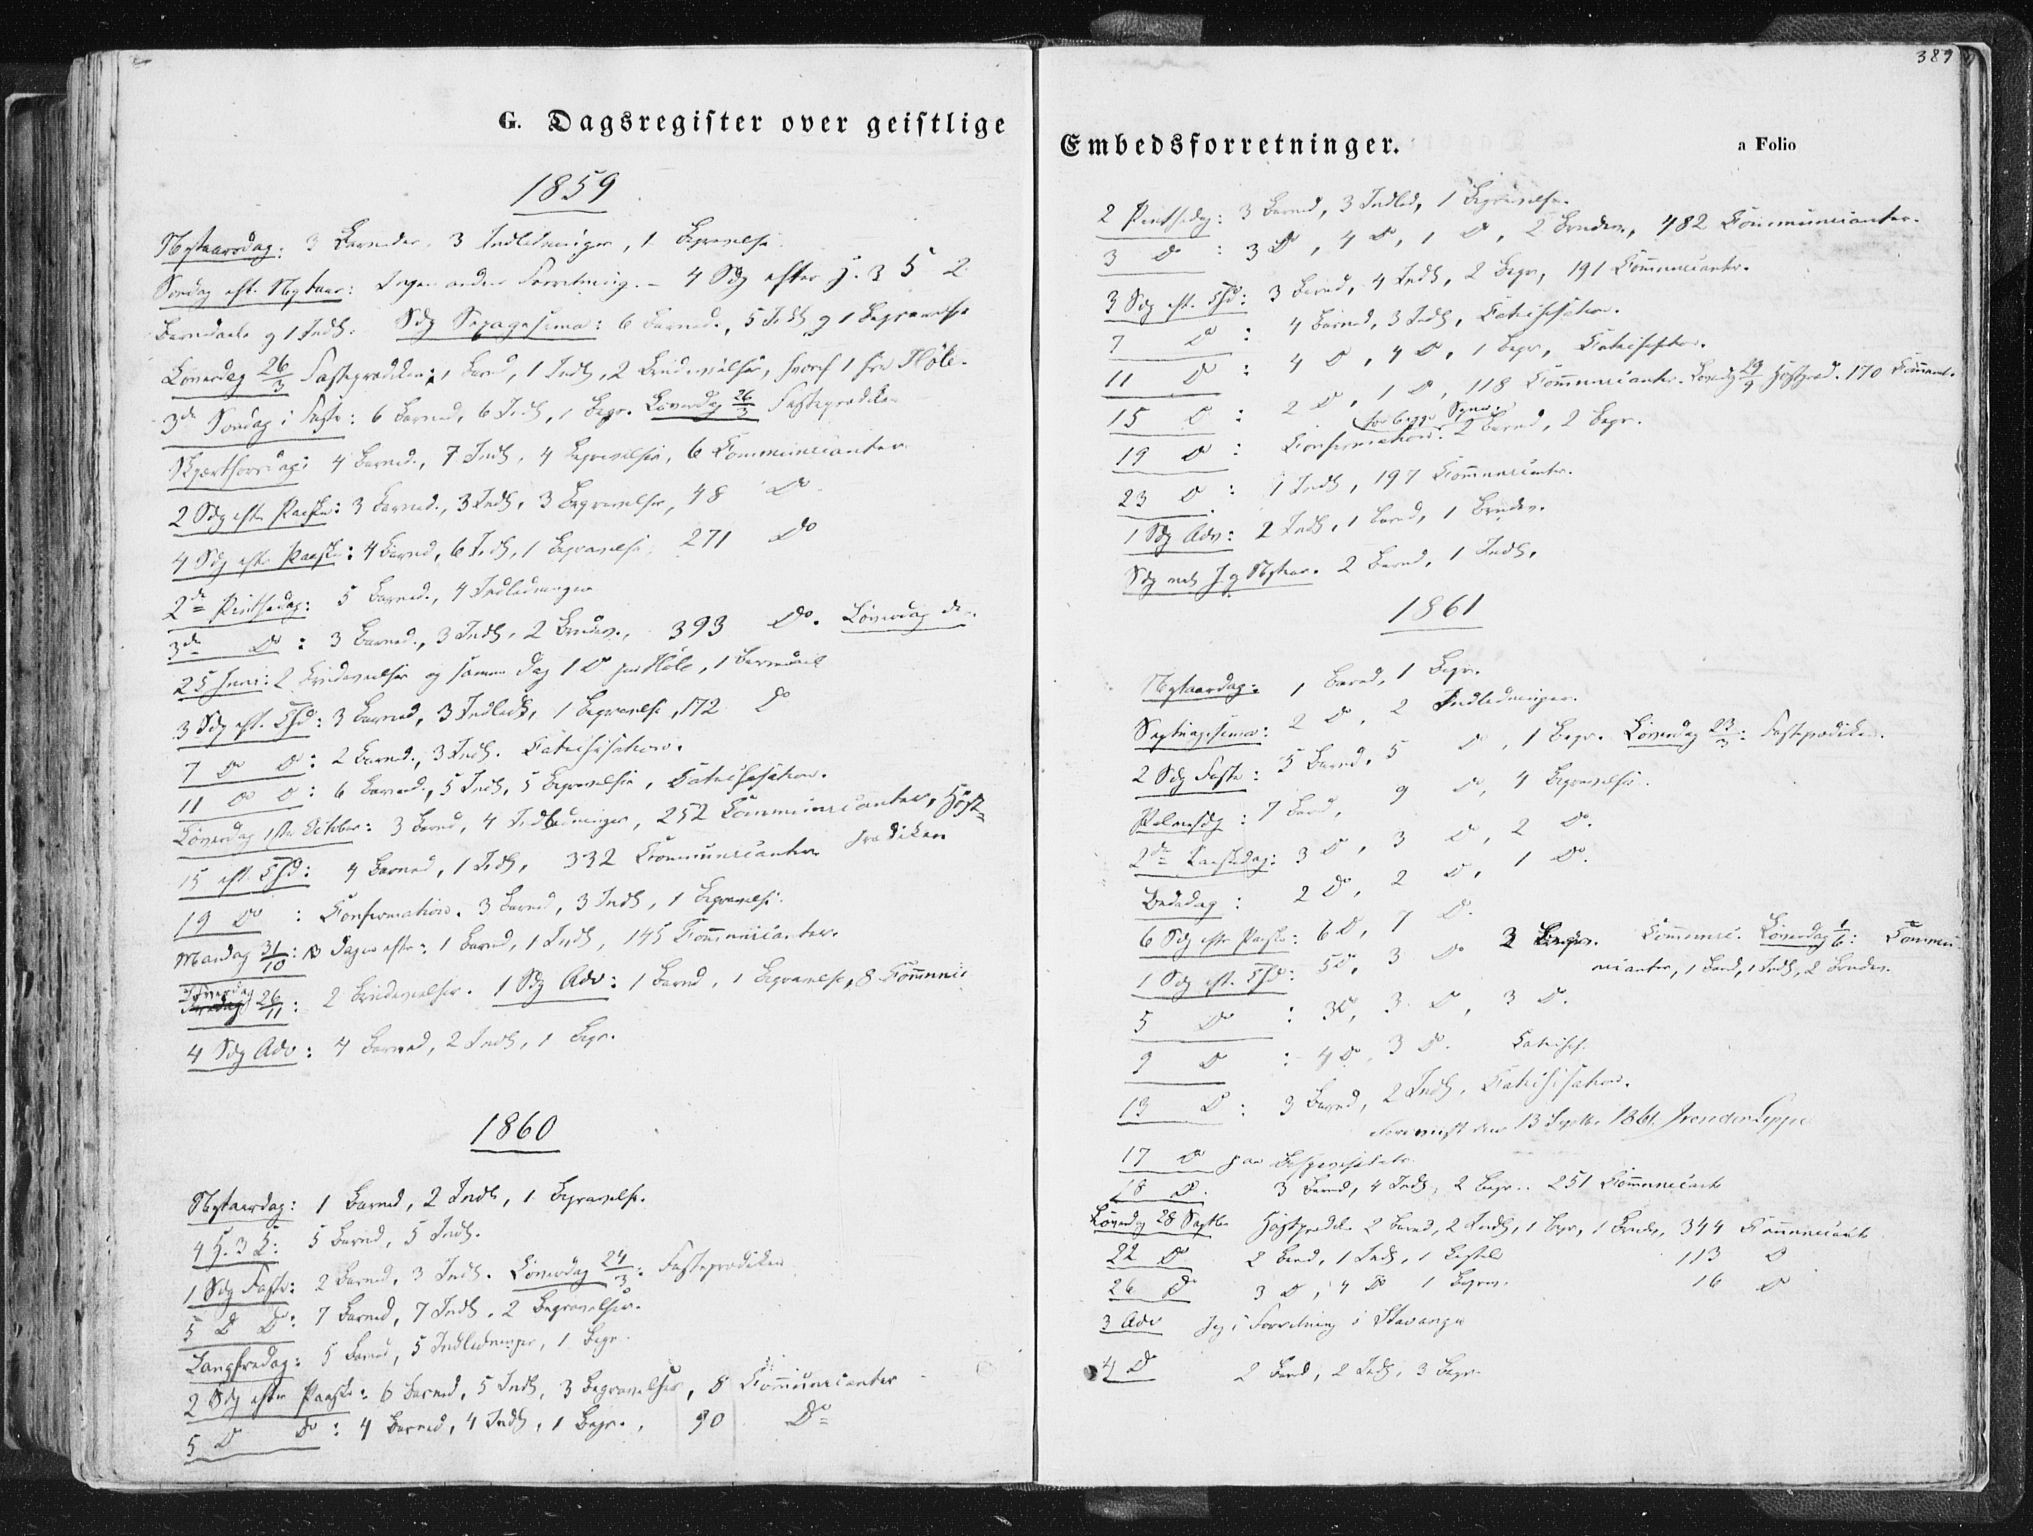 389
G. Dagsregister over geistlige Embedsforretninger.
a Folio
1859
Nytaarsdag: 3 Barnedaab, 3 Indledninger, 1 Begravelse.
Søndag eft. Nytaar: Ingen anden Forretning. – 4 Sdg efter H. 3 K. 2
Barnedaab og 1 Indl. Sdg Sexagesima: 6 Barned., 5 Indl. og 1 Begravelse
Løverdag 26/3 Fasteprædiken: 1 Barned, 1 Indl., 2 Brudevielser, hvoraf 1 fra Høle.
3die Søndag i Faste: 6 Barned, 6 Indl, 1 Begr. Løverdag 26/3 Fasteprædiken
Skjærthorsdag: 4 Barned., 7 Indl, 4 Begravelser, 6 Communicanter
2 Sdg eft. Paaske: 3 Barned., 3 Indl, 3 Begravelser, 48 Do
4 Sdg eft. Paaske: 4 Barned, 6 Indl, 1 Begravelse, 271 Do
2de Pintsedag: 5 Barned., 4 Indledninger
3de Do: 3 Barned., 3 Indl, 2 Brudev., 393 Do. Løverdag d.
25 Juni: 2 Brudevielser og samme Dag 1 Do paa Høle, 1 Barnedaab
3 Sdg eft. Tfd: 3 Barned, 3 Indledn, 1 Begravelse, 172 Do
7 Do Do: 2 Barned., 3 Indl. Catechisation.
11 Do Do: 6 Barned., 5 Indl, 5 Begravelser, Catechisation.
Løverdag 1ste October: 3 Barned, 4 Indledninger, 252 Communicanter, Høst-
prædiken
15 eft. Tfd: 4 Barned, 1 Indl, 332 Communicanter
19 Do: Confirmation. 3 Barned, 3 Indl, 1 Begravelse.
Mandag 31/10: Dagen efter: 1 Barned, 1 Indl, 145 Communicanter.
Løverdag 26/11: 2 Brudevielser. 1 Sdg Adv: 1 Barned, 1 Begravelse, 8 Communi
4 Sdg Adv: 4 Barned, 2 Indl, 1 Begr.
1860
Nytaarsdag: 1 Barned, 2 Indl, 1 Begravelse.
4 H. 3 K: 5 Barned, 5 Indl.
1 Sdg Faste: 2 Barned, 3 Indl. Løverdag 24/3: Fasteprædiken
5 Do Do: 7 Barned, 7 Indl, 2 Begravelser.
Langfredag: 5 Barned, 5 Indledninger, 1 Begr.
2 Sdg efter Paaske: 6 Barned, 5 Indl, 3 Begravelser, 8 Communicanter
5 Do Do: 4 Barned, 4 Indl, 1 Begr., 90 Do
2 Pintsedag: 3 Barned, 3 Indled, 1 Begravelse.
3 Do: 3 Do, 4 Do, 1 Do, 2 Brudev, 482 Communicanter.
3 Sdg eft. Tfd: 3 Barned, 4 Indl, 2 Begr, 191 Communicanter.
7 Do: 4 Barned, 3 Indl, Catechisation.
11 Do: 4 Do, 4 Do, 1 Begr, Catechisation.
15 Do: 2 Do, 1 Do, 118 Communicanter. Løverdg 29/9 Høstpræd. 170 Communi.
19 Do: Confirmation for begge Sogne. 2 Barned, 2 Begr.
23 Do: 1 Indl, 197 Communicanter.
1 Sdg Adv: 2 Indl, 1 Barned, 1 Brudev.
Sdg ml. J og Nytaar. 2 Barned, 1 Indl.
1861
Nytaarsdag: 1 Barned, 1 Begr.
Septuagesima: 2 Do, 2 Indledninger.
2 Sdg Faste: 5 Barned, 5 Do, 1 Begr. Løverdag 23/3: Fasteprædiken.
Palmesdg: 7 Barned, 9 Do, 4 Begravelser.
2de Paaskedag: 3 Do, 3 Do, 2 Do.
Bededag: 2 Do, 2 Do, 1 Do.
6 Sdg eft. Paaske: 6 Do, 7 Do.
1 Sdg eft. Tfd: 5 Do, 3 Do 2 Begr. Communi. Løverdag 1/6: Communi-
canter, 1 Barned, 1 Indl, 2 Brudev.
5 Do: 3 Do, 3 Do, 3 Do.
9 Do: 4 Do, 3 Do. Catechis.
13 Do: 3 Barned, 2 Indl, Catechisation.
Foreviist den 13 Septbr 1861.
17 Do paa
18 Do. 3 Barned, 4 Indl, 2 Begr. 251 Communicant
Løverdg 28 Septbr Høstprædik. 2 Barned, 2 Indl, 1 Begr, 1 Brudev, 344 Communicant
22 Do 2 Barned, 1 Indl, 1 113 Do
26 Do 3 Do, 4 Do 1 Begrav. 16 Do
3 Adv Jeg i Forretning i Stavanger
4 Do 2 Barned, 2 Indl, 3 Begr.